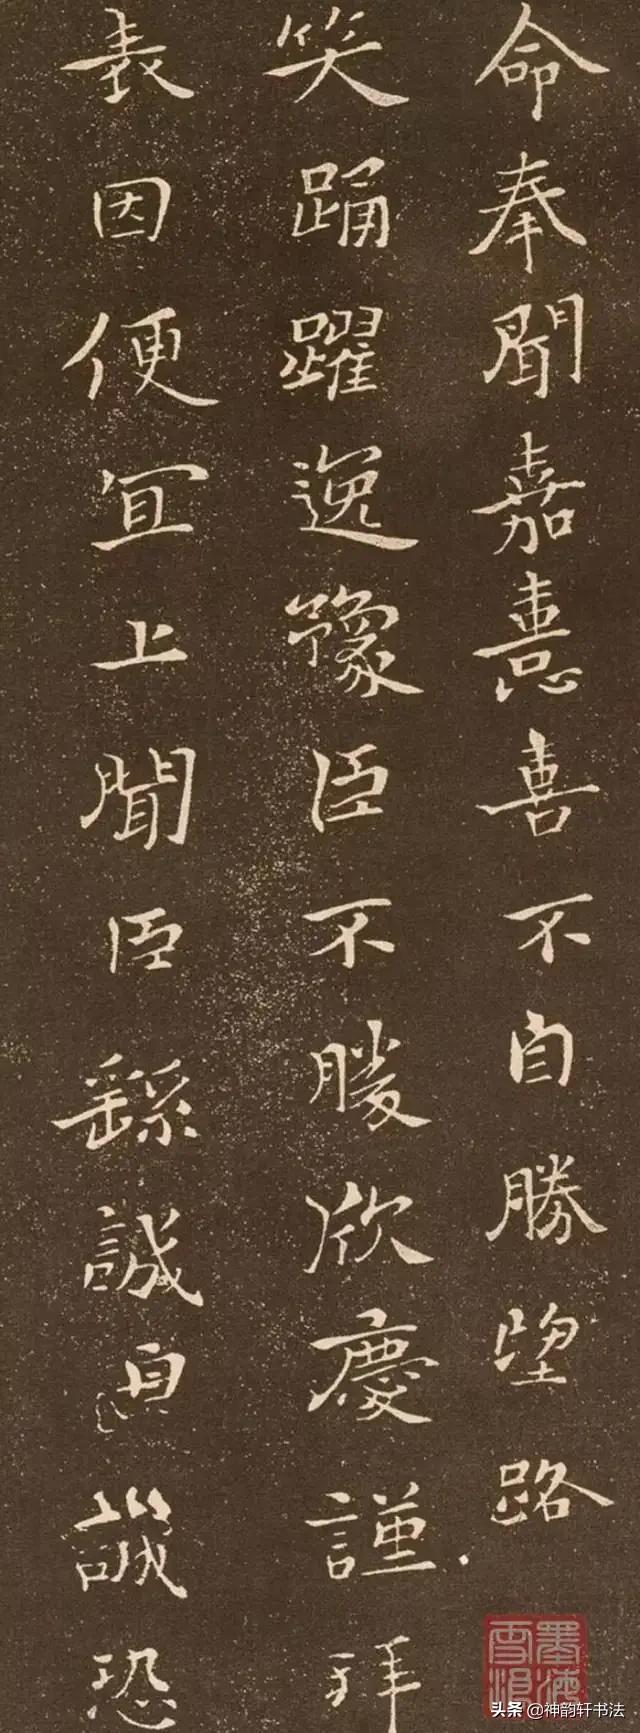 命奉聞嘉憙喜不自勝望路
笑踊躍逸豫臣不勝欣慶謹拜
表因便宜上聞臣繇誠皇誠恐
墨海
头条 @神韵轩书法